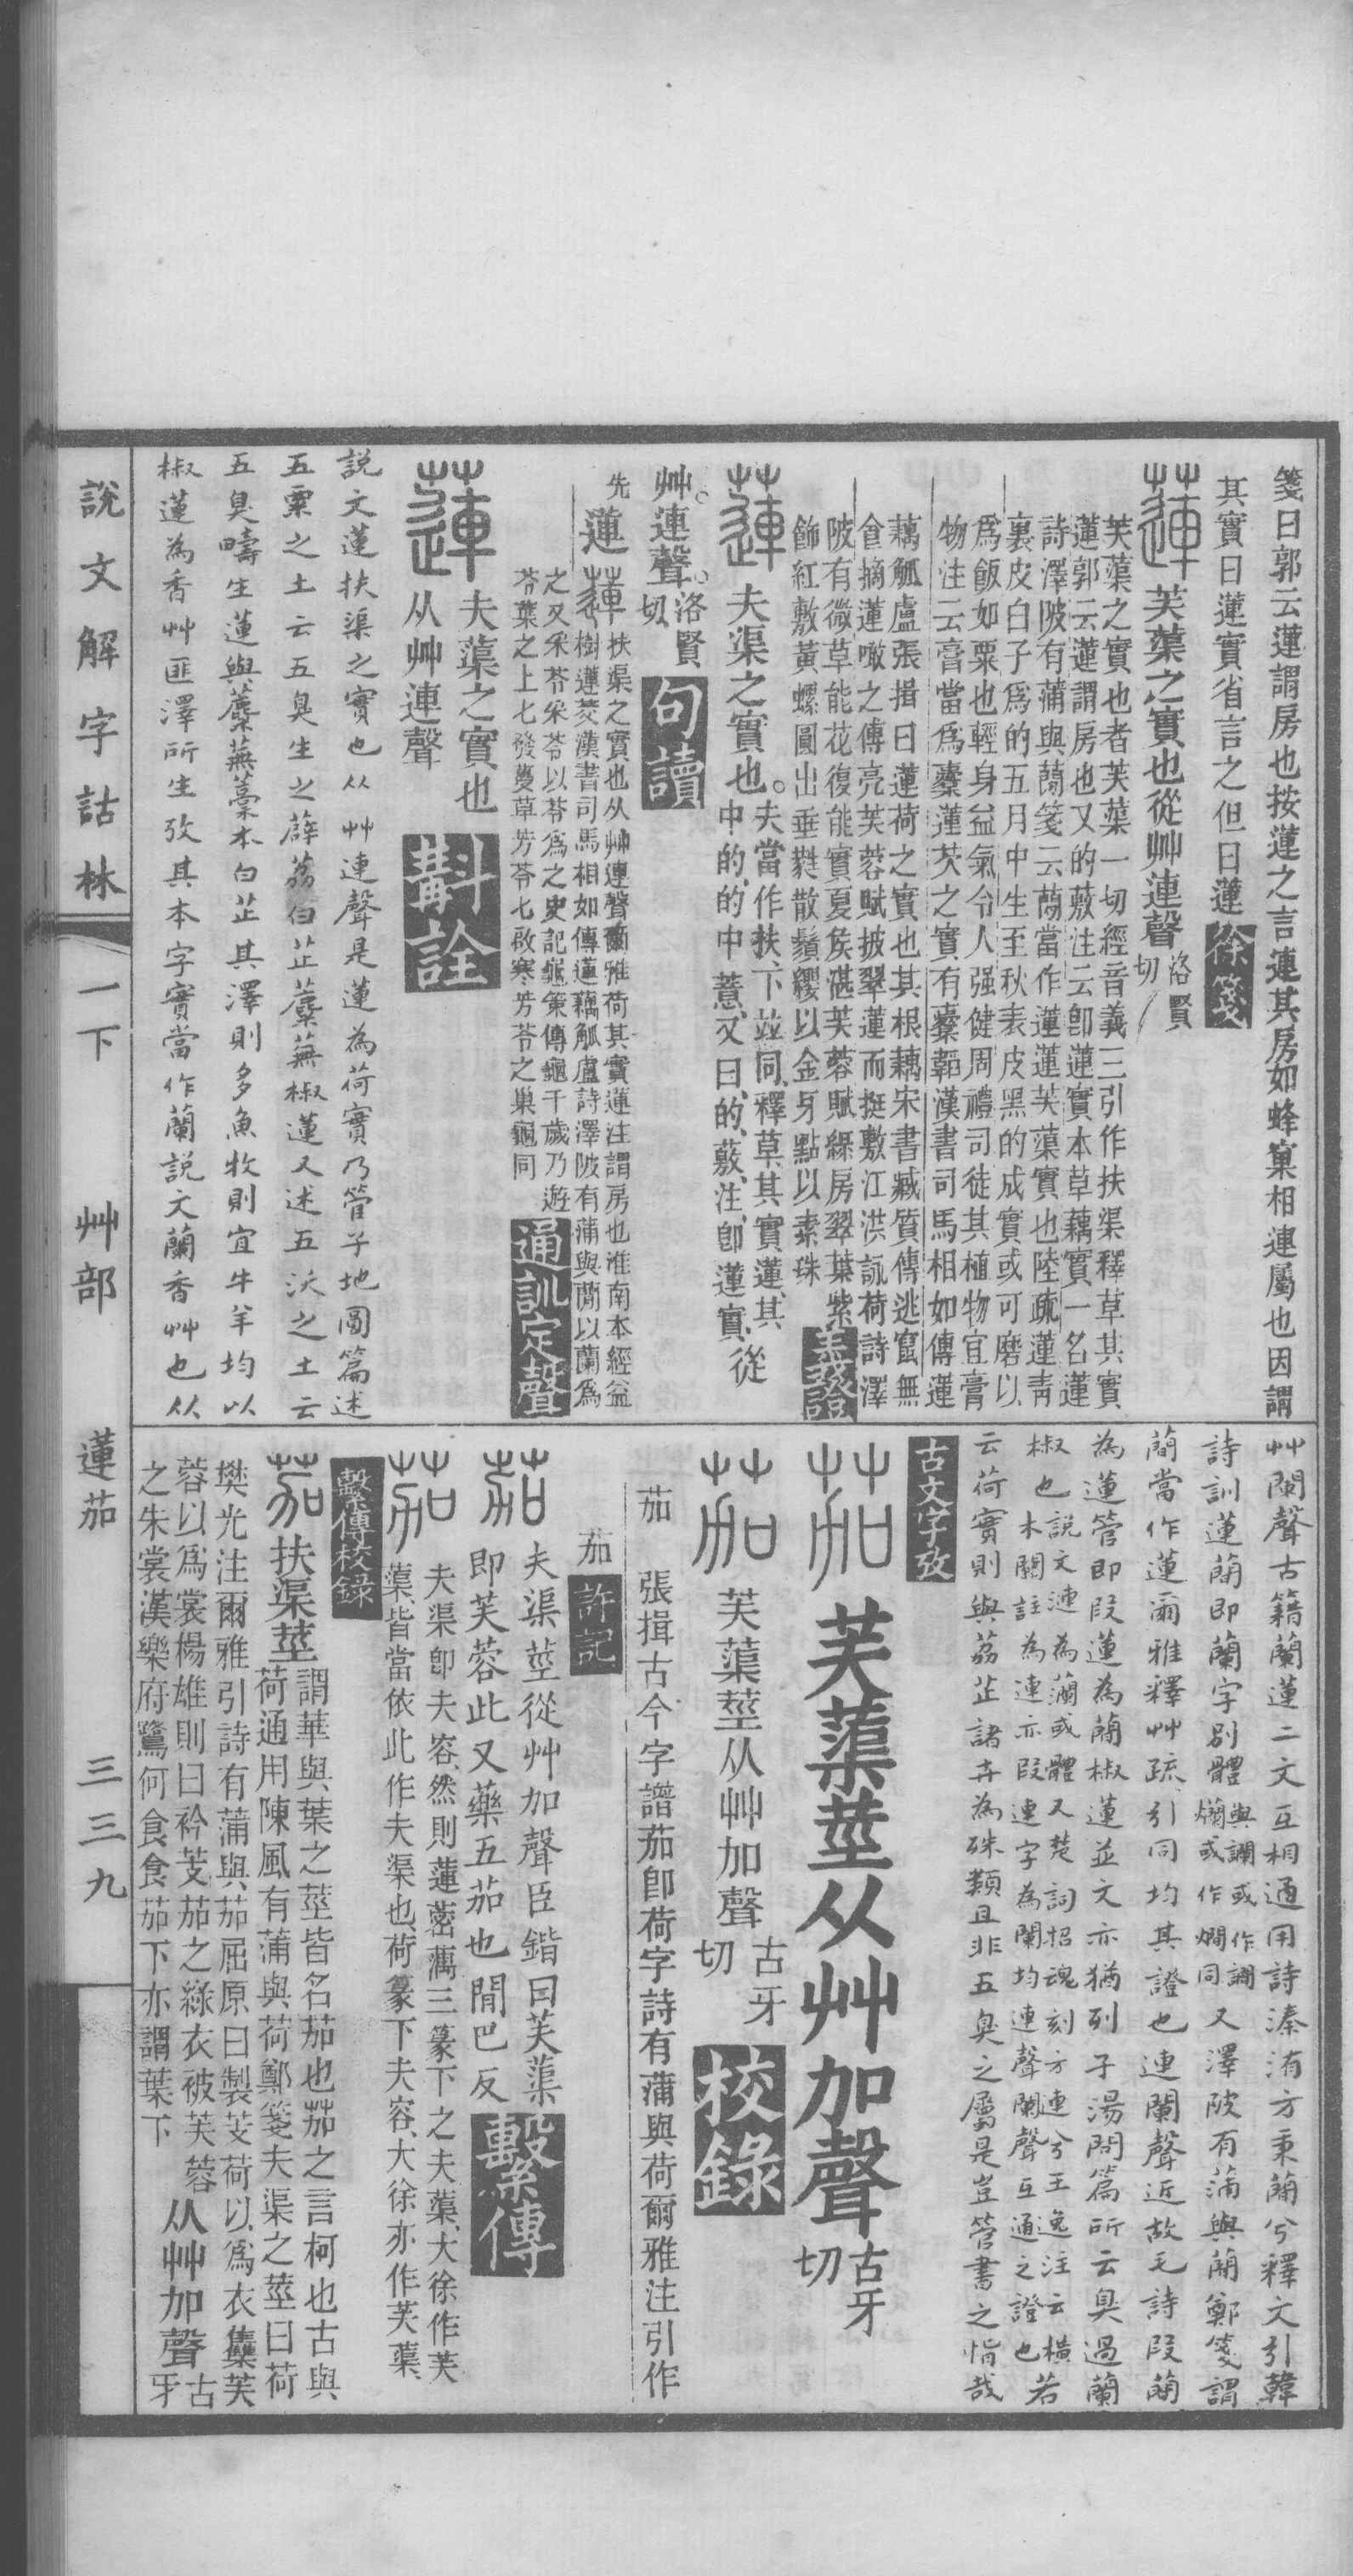 箋曰郭云蓮謂房也按蓮之言連其房如蜂窠相連屬也因謂
其實曰蓮實省言之但曰蓮 徐箋
蓮 芙蕖之實也從艸連聲 洛賢切
芙蕖之實也者芙蕖一切經音義三引作扶渠釋草其實
蓮郭云蓮謂房也又的薂注云卽蓮實本草藕實一名蓮
詩澤陂有蒲與蕑箋云蕑當作蓮蓮芙蕖實也陸疏蓮靑
裏皮白子爲的五月中生至秋表皮黑的成實或可磨以
爲飯如粟也輕身益氣令人强健周禮司徒其植物宜膏
物注云膏當爲櫜蓮芡之實有櫜韜漢書司馬相如傳蓮
藕觚盧張揖曰蓮荷之實也其根藕宋書臧質傳逃竄無
食摘蓮噉之傳亮芙蓉賦披翠蓮而挺敷江洪詠荷詩澤
陂有微草能花復能實夏侯湛芙蓉賦綠房翠葉紫
飾紅敷黃螺圓出垂蕤散鬚纓以金牙點以素珠 義證
蓮 夫渠之實也。夫當作扶、下竝同、釋草、其實蓮、其
中的、的、中薏、又曰、的、薂、注、卽蓮實、從
艸。連聲。洛賢切 句讀
先
蓮 扶渠之實也从艸連聲爾雅荷其實蓮注謂房也淮南本經益
樹蓮菱漢書司馬相如傳蓮藕觚盧詩澤陂有蒲與蕑以蘭爲
之又采苓采苓以苓爲之史記龜策傳龜千歲乃遊
苓葉之上七發蔓草芳苓七啟寒芳苓之巢龜同 通訓定聲
蓮 夫蕖之實也
从艸連聲 斠詮
說文蓮扶渠之實也从艸連聲是蓮為荷實乃管子地圖篇述
五粟之土云五臭生之薜荔白芷蘪蕪椒蓮又述五沃之土云
五臭疇生蓮與蘪蕪藁本白芷其澤則多魚牧則宜牛羊均以
椒蓮為香艸匪澤所生攷其本字實當作蘭說文蘭香艸也从
艸闌聲古籍蘭蓮二文互相通用詩溱洧方秉蕑兮釋文引韓
詩訓蓮蕑即蘭字別體 與讕或作𧬘爛或作燗同 又澤陂有蒲與蕑鄭箋謂
蕑當作蓮爾雅釋艸疏引同均其證也連闌聲近故毛詩叚蕑
為蓮管即叚蓮為蕑椒蓮並文亦猶列子湯問篇所云臭過蘭
椒也 說文漣為瀾或體又楚詞招魂刻方連兮王逸注云橫木關註為連亦叚連字為闌均連聲闌聲互通之證也 若
云荷實則與荔芷諸卉為殊類且非五臭之屬是豈管書之恉哉
古文字攷
茄 芙蕖莖从艸加聲 古牙切
茄 芙蕖莖从艸加聲 古牙切 校錄
茄 張揖古今字譜茄卽荷字詩有蒲與荷爾雅注引作
茄 許記
茄 夫渠莖從艸加聲臣鍇曰芙蕖
即芙蓉此又藥五茄也閒巴反 繫傳
茄 夫渠卽夫容、然則蓮蔤蕅三篆下之夫蕖、大徐作芙
蕖、皆當依此作夫渠也、荷篆下夫容、大徐亦作芙蕖、
繫傳校錄
茄 扶渠莖 謂華與葉之莖皆名茄也茄之言柯也古與
荷通用陳風有蒲與荷鄭箋夫渠之莖曰荷
樊光注爾雅引詩有蒲與茄屈原曰製芰荷以爲衣集芙
蓉以爲裳楊雄則曰衿芰茄之綠衣被芙蓉
之朱裳漢樂府鷺何食食茄下亦謂葉下 从艸加聲 古牙
說文解字詁林 一下 艸部 蓮茄 三三九